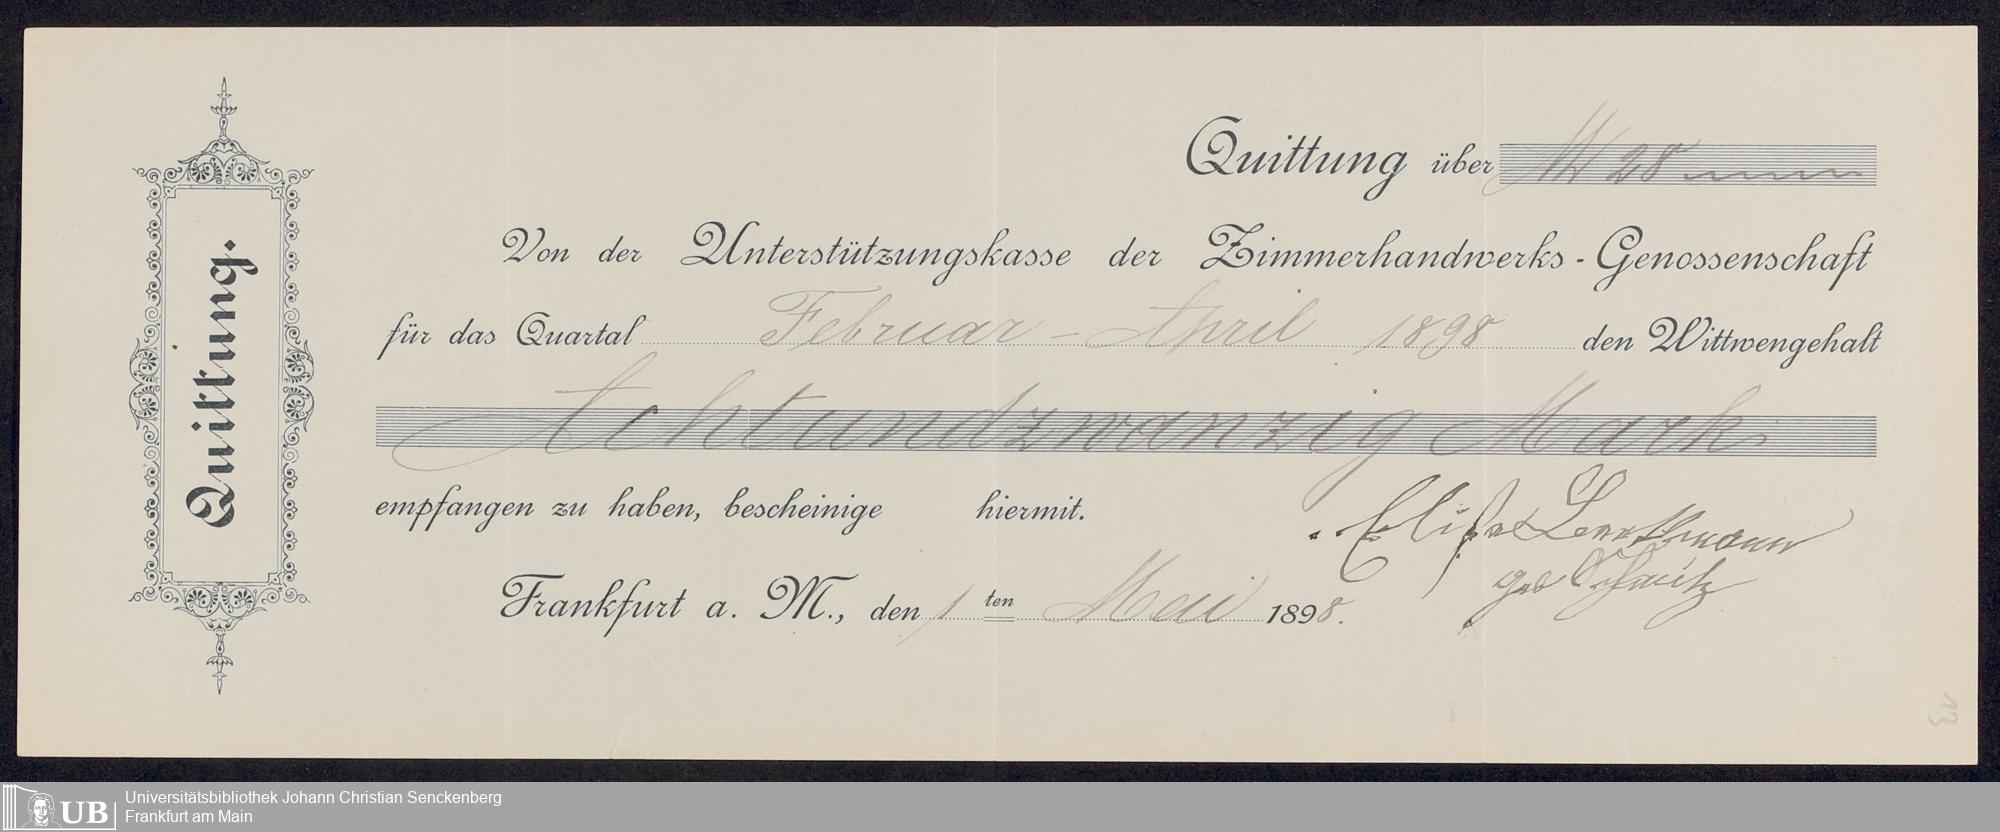 Quittung.
Quittung über M 28
Von der Unterstützungskasse der Zimmerhandwerks-Genossenschaft
für das Quartal Februar - April 1898 den Wittwengehalt
Achtundzwanzig Mark
empfangen zu haben, bescheinige hiermit.
Elise
geb
Frankfurt a. M., den 1 ten Mai 1898.
13
UB Universitätsbibliothek Johann Christian Senckenberg
Frankfurt am Main